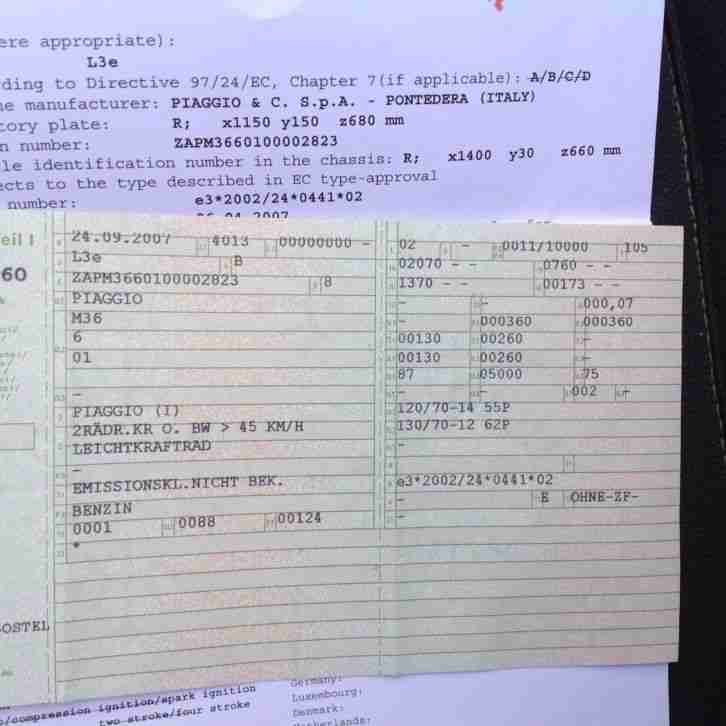 ere appropriate):
L3e
rding to Directive 97/24/EC, Chapter 7(if applicable): A/B/C/D
he manufacturer: PIAGGIO & C. S.p.A. - PONTEDERA (ITALY)
tory plate: R; x1150 y150 z680 mm
n number: ZAPM3660100002823
le identification number in the chassis: R; x1400 y30 z660 mm
ects to the type described in EC type-approval
number: e3*2002/24*0441*02
06.04.2007
eil I
60
24.09.2007 4013 00000000 -
L3e B
ZAPM3660100002823 8
PIAGGIO
M36
6
01
-
PIAGGIO (I)
2RÄDR.KR O. BW > 45 KM/H
LEICHTKRAFTRAD
-
EMISSIONSKL.NICHT BEK.
BENZIN
0001 0088 00124
*
02 - 0011/10000 105
02070 - - 0760 - -
1370 - - 00173 - -
- - 000,07
- 000360 000360
00130 00260 -
00130 00260 -
87 05000 75
- - 002 -
120/70-14 55P
130/70-12 62P
-
-
e3*2002/24*0441*02
- E OHNE-ZF-
-
OSTEL
/compression ignition/spark ignition
two stroke/four stroke
Germany:
Luxembourg:
Denmark:
Netherlands: